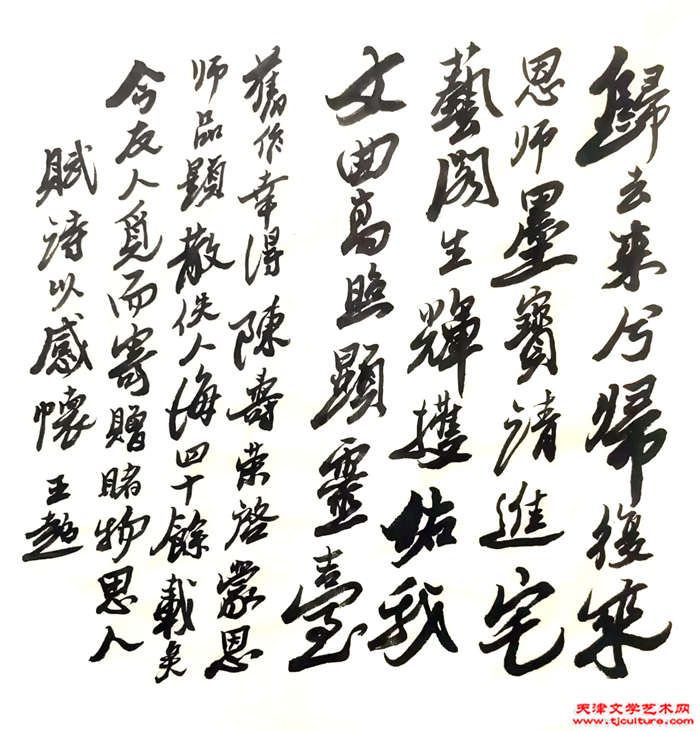 歸去来兮歸復來
恩师墨寶请進宅
藝阁生輝獲佑我
文曲高照顯靈臺
舊作幸得陳壽荣啓蒙恩
师品題散佚人海四十餘載矣
今友人覓而寄贈睹物思人
赋诗以感懷 王超
天津文学艺术网
www.tjculture.com